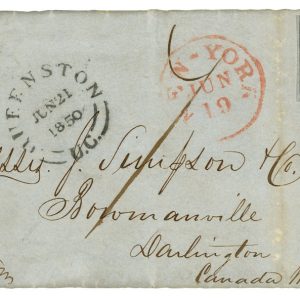 QUEENSTON
JUN 21
1850
U.C.
NEW-YORK
JUN
19
Messrs J. Simpson & Co.
Bowmanville
Darlington
Canada W